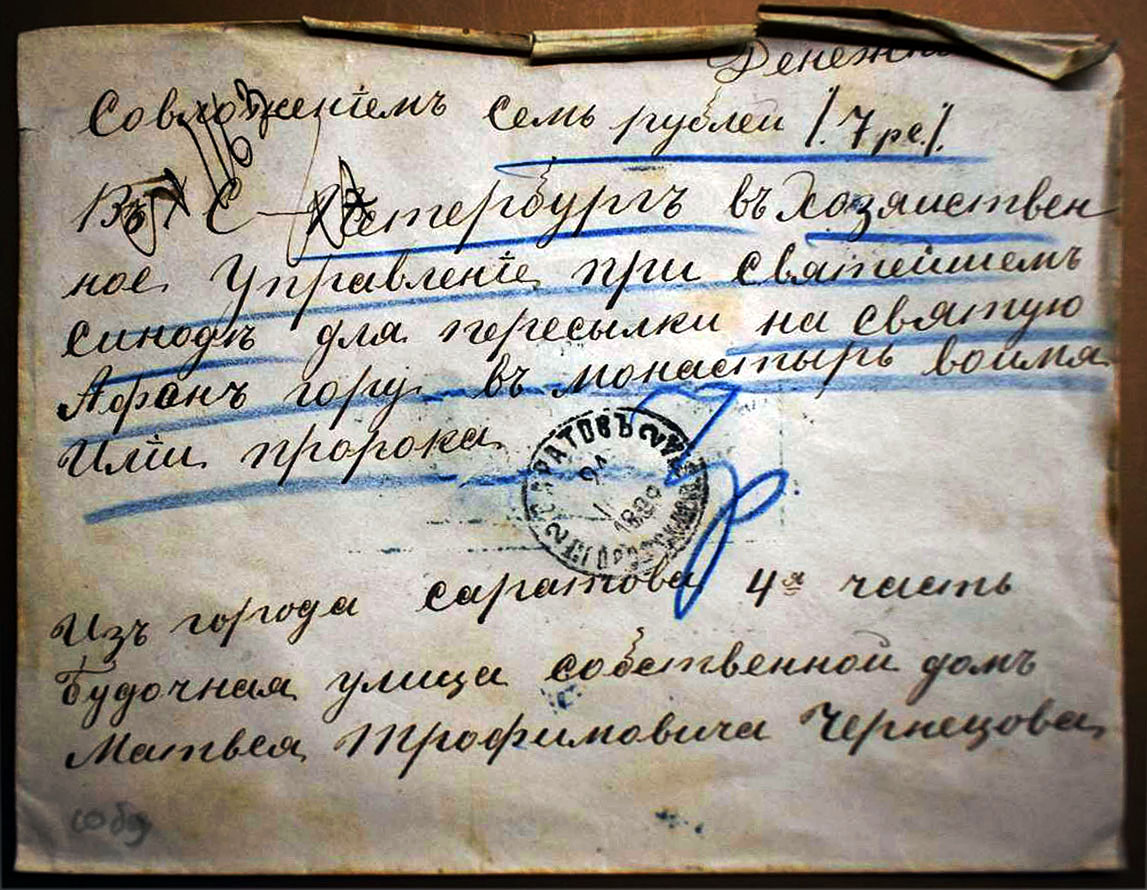 Денежн
Совложенiемъ семь рублей /. 7 рс./.
1163
Въ С-Петербургъ въ Хозяиствен
ное Управленiе при святейшемъ
синодъ для пересылки на святую
Афанъ гору въ монастырь воимя
Илiи пророка
САРАТОВЪ
24
Изъ города саратова 4я часть
Будочная улица собственной домъ
Матвея Трофимовича Чернецова